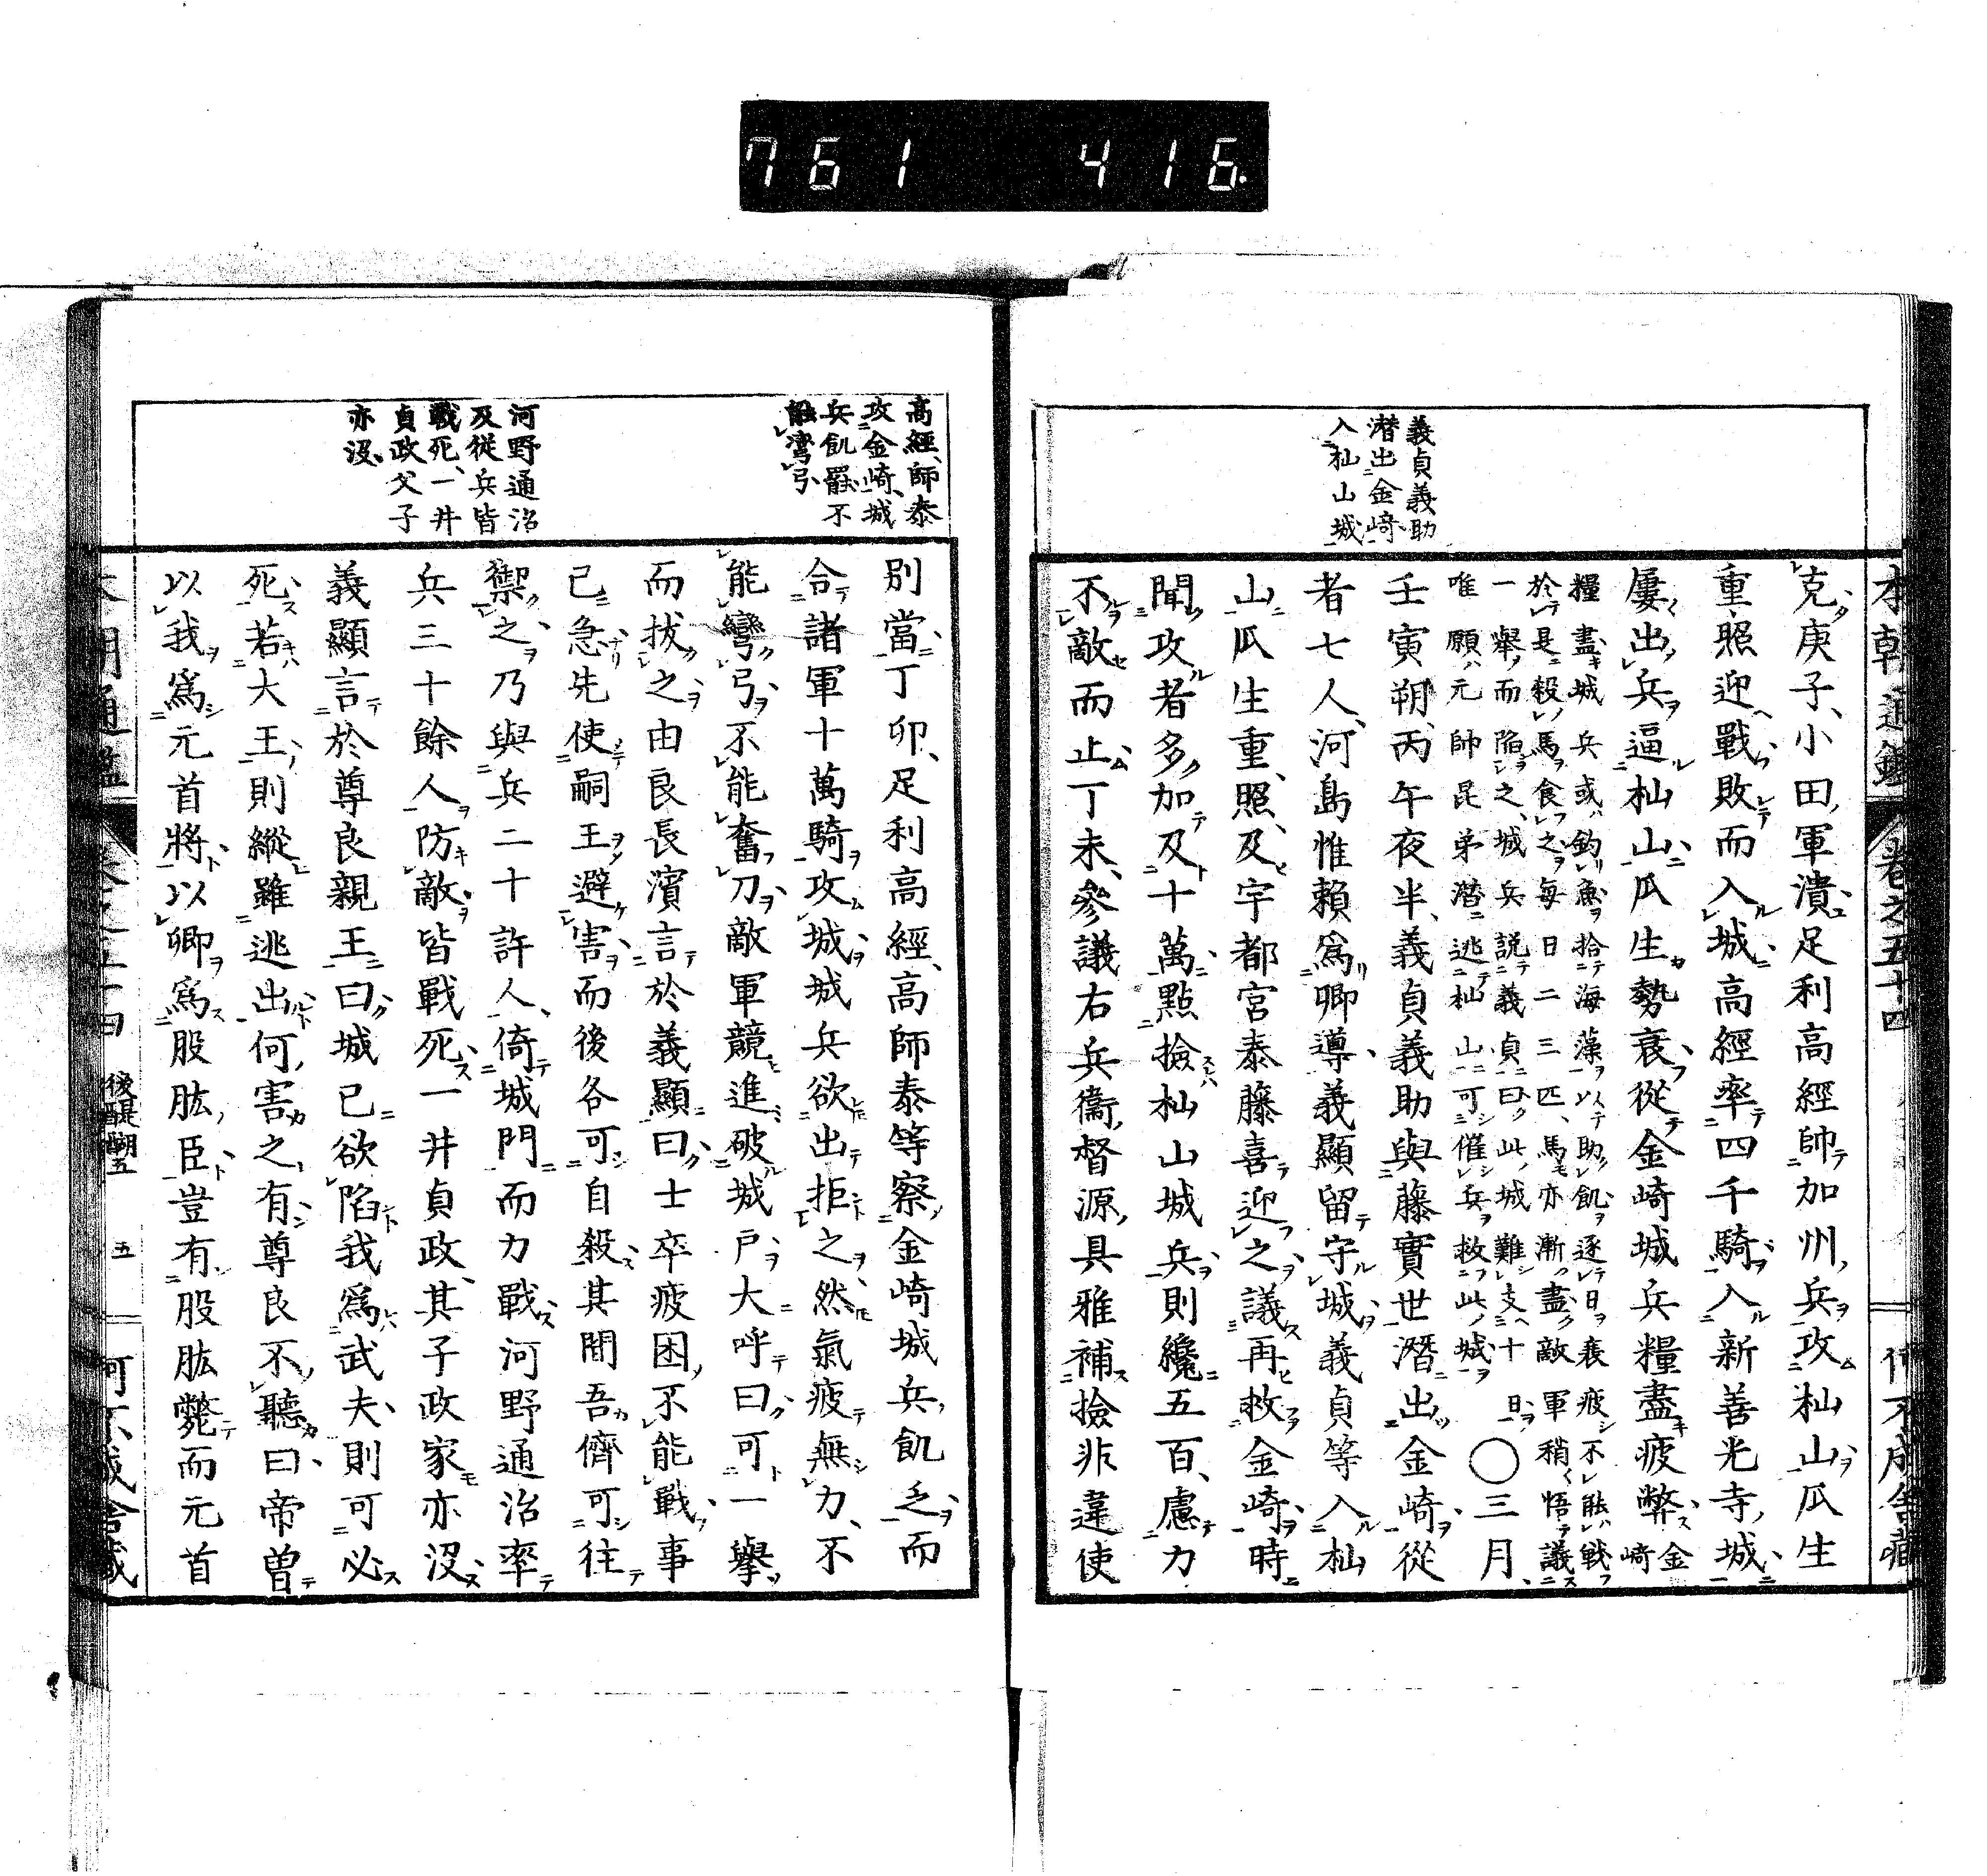 761 416
本朝通鑑 卷之五十四
義貞義助
潛出金崎
入杣山城
克庚子小田軍潰足利高經帥加州兵攻杣山瓜生
重照迎戰敗而入城高經率四千騎入新善光寺城
屢出兵逼杣山瓜生勢衰從金崎城兵糧盡疲弊金崎
糧盡城兵或釣魚拾海藻以助飢逐日衰疲不能戰
於是殺馬食之每日二三匹馬亦漸盡敵軍稍悟議
一擧而陷之城兵説義貞曰此城難支十日
唯願元帥昆弟潛逃杣山可催兵救此城○三月
壬寅朔丙午夜半義貞義助與藤實世潛出金崎從
者七人河島惟賴爲卿導義顯留守城義貞等入杣
山瓜生重照及宇都宮泰藤喜迎之議再救金崎時
聞攻者多加及十萬點撿杣山城兵則纔五百慮力
不敵而止丁未參議右兵衞督源具雅補撿非違使
高經師泰
攻金崎城
兵飢罷不
能彎弓
河野通治
及從兵皆
戰死一井
貞政父子
亦沒
別當丁卯足利高經高師泰等察金崎城兵飢乏而
合諸軍十萬騎攻城城兵欲出拒之然氣疲無力不
能彎弓不能奮刀敵軍競進破城戸大呼曰可一擧
而拔之由良長濱言於義顯曰士卒疲困不能戰事
已急先使嗣王避害而後各可自殺其間吾儕可往
禦之乃與兵二十許人倚城門而力戰河野通治率
兵三十餘人防敵皆戰死一井貞政其子政家亦沒
義顯言於尊良親王曰城已欲陷我爲武夫則可必
死若大王則縱雖逃出何害之有尊良不聽曰帝曽
以我爲元首將以卿爲股肱臣豈有股肱斃而元首
後醍醐五 五